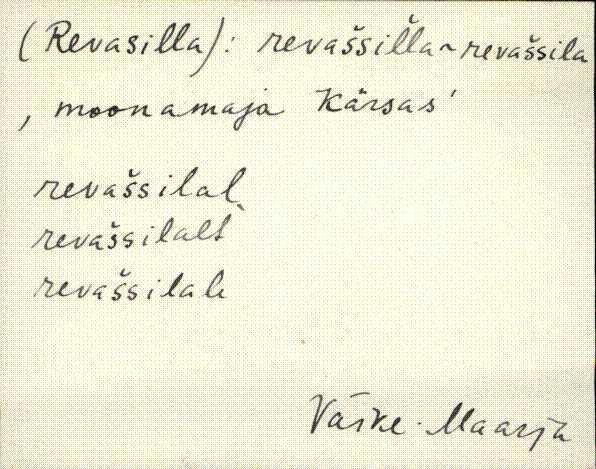 (Revasilla): revaššilla ~ revaššila
, moonamaja Kärsas'
revaššilal
revaššilalt
revaššilale
Väike-Maarja